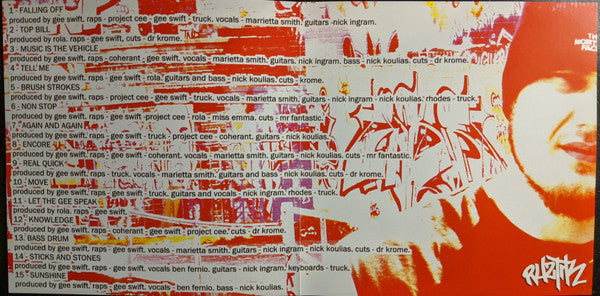 1 - FALLING OFF
produced by gee swift. raps - project cee - gee swift - truck. vocals - marrietta smith. guitars -nick ingram.
2 - TOP BILL
produced by rola. raps - gee swift. cuts - dr krome.
3 - MUSIC IS THE VEHICLE
produced by gee swift. raps - coherant - gee swift. vocals - marietta smith. guitars. nick ingram. bass - nick koulias. cuts - dr krome.
4 - TELL ME
produced by gee swift. raps - gee swift - rola. guitars and bass - nick koulias. cuts - krome.
5 - BRUSH STROKES
produced by gee swift. raps - project cee - gee swift - truck. vocals - marietta smith. guitars - nick ingram - nick koulias. rhodes - truck.
6 - NON STOP
produced by gee swift. raps - project cee - gee swift - rola - miss emma. cuts - mr fantastic.
7 - AGAIN AND AGAIN
produced by gee swift - truck - project cee - coherant. guitars - nick koulias.
8 - ENCORE
produced by gee swift. raps - gee swift - coherant. vocals - marietta smith. guitars - nick ingram. cuts - mr fantastic.
9 - REAL QUICK
produced by gee swift. raps - gee swift - truck. vocals - marietta smith. guitars and bass - nick koulias. cuts - dr krome.
10 - MOVE
produced by gee swift. raps - gee swift - truck. guitars and vocals - nick ingram. rhodes - truck.
11 - LET THE GEE SPEAK
produced by rola. raps - gee swift.
12 - KNOWLEDGE
produced by gee swift. raps - coherant - gee swift - project cee. cuts - dr krome.
13. BASS DRUM
produced by gee swift. raps - gee swift. vocals - marietta smith. guitars - nick ingram - nick koulias. cuts - dr krome.
14 - STICKS AND STONES
produced by gee swift. raps - gee swift. vocals ben fernio. guitars - nick ingram. keyboards - truck.
15 - SUNSHINE
produced by gee swift. raps - gee swift. vocals - ben fernio. bass - nick koulias.